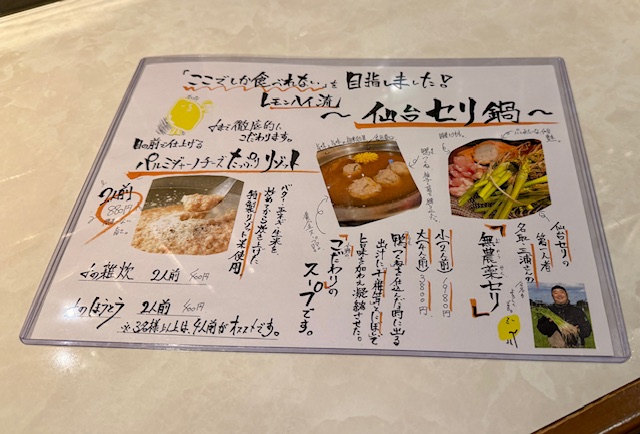 「ここでしか食べれない」を目指しました!
レモンハイ流
〜仙台セリ鍋〜
〆まで徹底的に
こだわります。
目の前で仕上げる
パルミジャーノチーズたっぷりリゾット
2人前
880円
バター、玉ネギ、生米を
炒めてから炊き上げた
特製リゾット米使用
〆の雑炊 2人前 400円
〆のほうとう 2人前 400円
※3名様以上は、4人前がオススメです。
仙台セリの
第一人者
名取 三浦さんの
「無農薬セリ」
小(2人前) 1980円
大(4人前) 3800円
鴨つくねを仕込んだ時に出る
出汁に
旨味を加え凝縮させた。
「こだわりの
スープです。